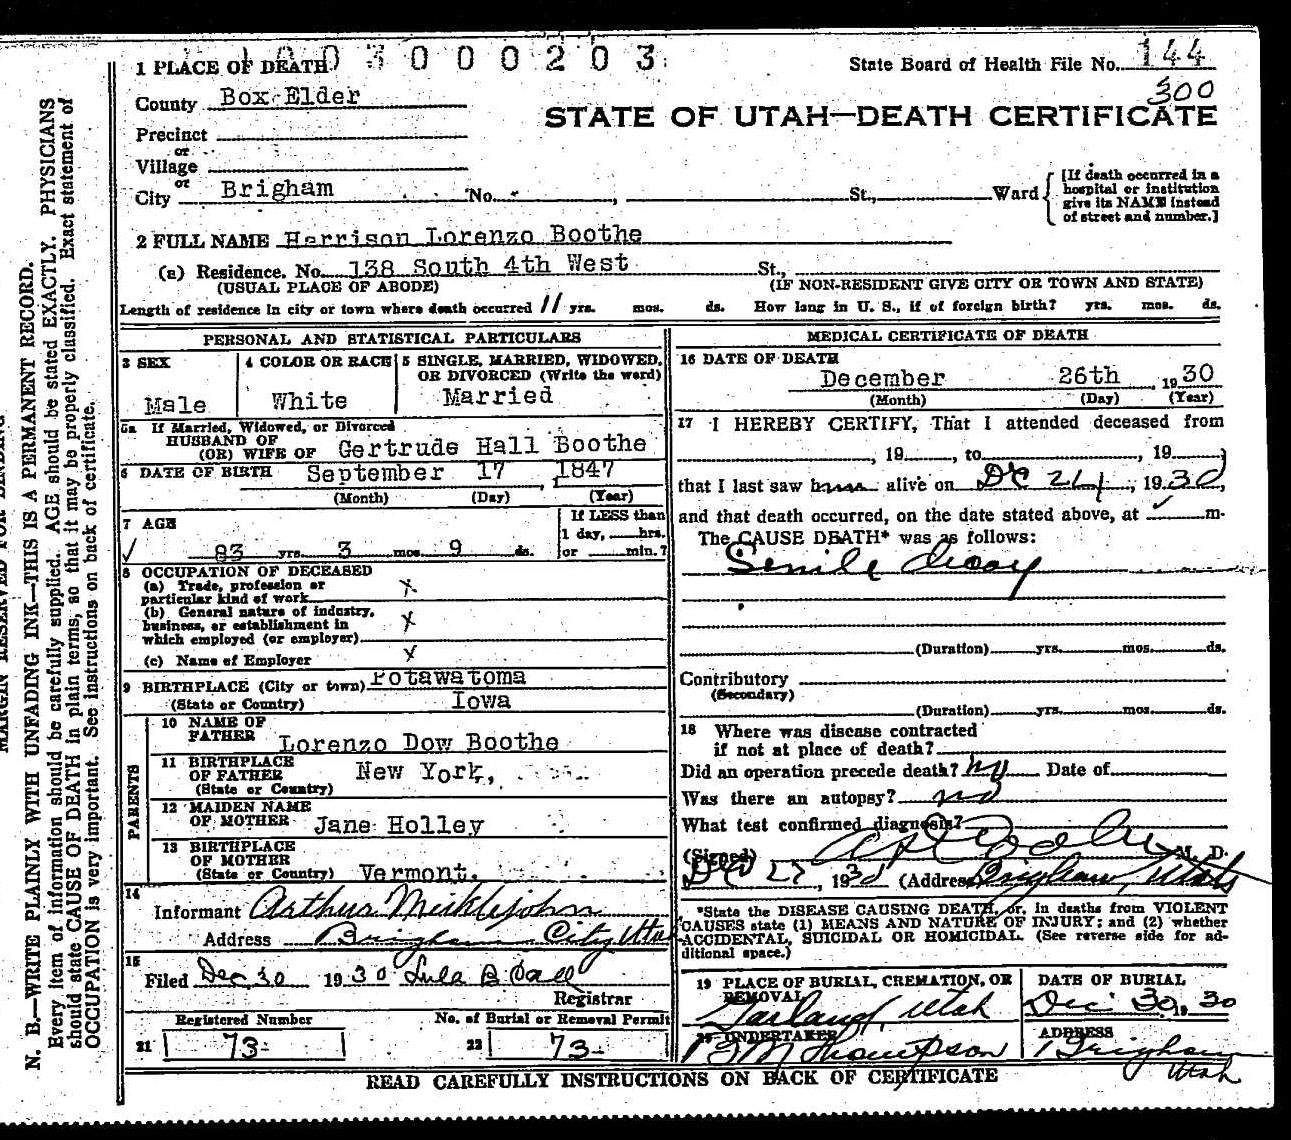 1003000203
1 PLACE OF DEATH
State Board of Health File No. 144
300
County Box Elder
STATE OF UTAH—DEATH CERTIFICATE
Precinct
or
Village
or
City Brigham No. , St., Ward
[If death occurred in a
hospital or institution
give its NAME instead
of street and number.]
2 FULL NAME Harrison Lorenzo Boothe
(a) Residence. No. 138 South 4th West St.,
(USUAL PLACE OF ABODE) (IF NON-RESIDENT GIVE CITY OR TOWN AND STATE)
Length of residence in city or town where death occurred 11 yrs. mos. ds. How long in U. S., if of foreign birth? yrs. mos. ds.
PERSONAL AND STATISTICAL PARTICULARS
3 SEX
Male
4 COLOR OR RACE
White
5 SINGLE, MARRIED, WIDOWED,
OR DIVORCED (Write the word)
Married
5a If Married, Widowed, or Divorced
HUSBAND OF
(OR) WIFE OF Gertrude Hall Boothe
6 DATE OF BIRTH September 17, 1847
(Month) (Day) (Year)
7 AGE
83 yrs. 3 mos. 9 ds.
If LESS than
1 day, hrs.
or min.?
8 OCCUPATION OF DECEASED
(a) Trade, profession or
particular kind of work x
(b) General nature of industry,
business, or establishment in
which employed (or employer) x
(c) Name of Employer x
9 BIRTHPLACE (City or town) Potawatoma
(State or Country) Iowa
PARENTS
10 NAME OF
FATHER Lorenzo Dow Boothe
11 BIRTHPLACE
OF FATHER New York,
(State or Country)
12 MAIDEN NAME
OF MOTHER Jane Holley
13 BIRTHPLACE
OF MOTHER
(State or Country) Vermont.
14
Informant Arthur Meiklejohn
Address Brigham City, Utah
15
Filed Dec 30 1930 Lula B Call
Registrar
Registered Number No. of Burial or Removal Permit
21 73 22 73
MEDICAL CERTIFICATE OF DEATH
16 DATE OF DEATH
December 26th, 1930
(Month) (Day) (Year)
17 I HEREBY CERTIFY, That I attended deceased from
, 19 , to , 19 ,
that I last saw him alive on Dec 24, 1930,
and that death occurred, on the date stated above, at m.
The CAUSE DEATH* was as follows:
Senile decay
(Duration) yrs. mos. ds.
Contributory
(Secondary)
(Duration) yrs. mos. ds.
18 Where was disease contracted
if not at place of death?
Did an operation precede death? no Date of
Was there an autopsy? no
What test confirmed diagnosis?
(Signed) M. D.
Dec 27, 1930 (Address) Brigham, Utah
*State the DISEASE CAUSING DEATH, or, in deaths from VIOLENT
CAUSES state (1) MEANS AND NATURE OF INJURY; and (2) whether
ACCIDENTAL, SUICIDAL OR HOMICIDAL. (See reverse side for ad-
ditional space.)
19 PLACE OF BURIAL, CREMATION, OR
REMOVAL
Garland, Utah
DATE OF BURIAL
Dec 30, 1930
20 UNDERTAKER
Thompson
ADDRESS
Brigham
Utah
READ CAREFULLY INSTRUCTIONS ON BACK OF CERTIFICATE
MARGIN RESERVED FOR BINDING
N. B.—WRITE PLAINLY WITH UNFADING INK—THIS IS A PERMANENT RECORD.
Every item of information should be carefully supplied. AGE should be stated EXACTLY. PHYSICIANS
should state CAUSE OF DEATH in plain terms, so that it may be properly classified. Exact statement of
OCCUPATION is very important. See instructions on back of certificate.